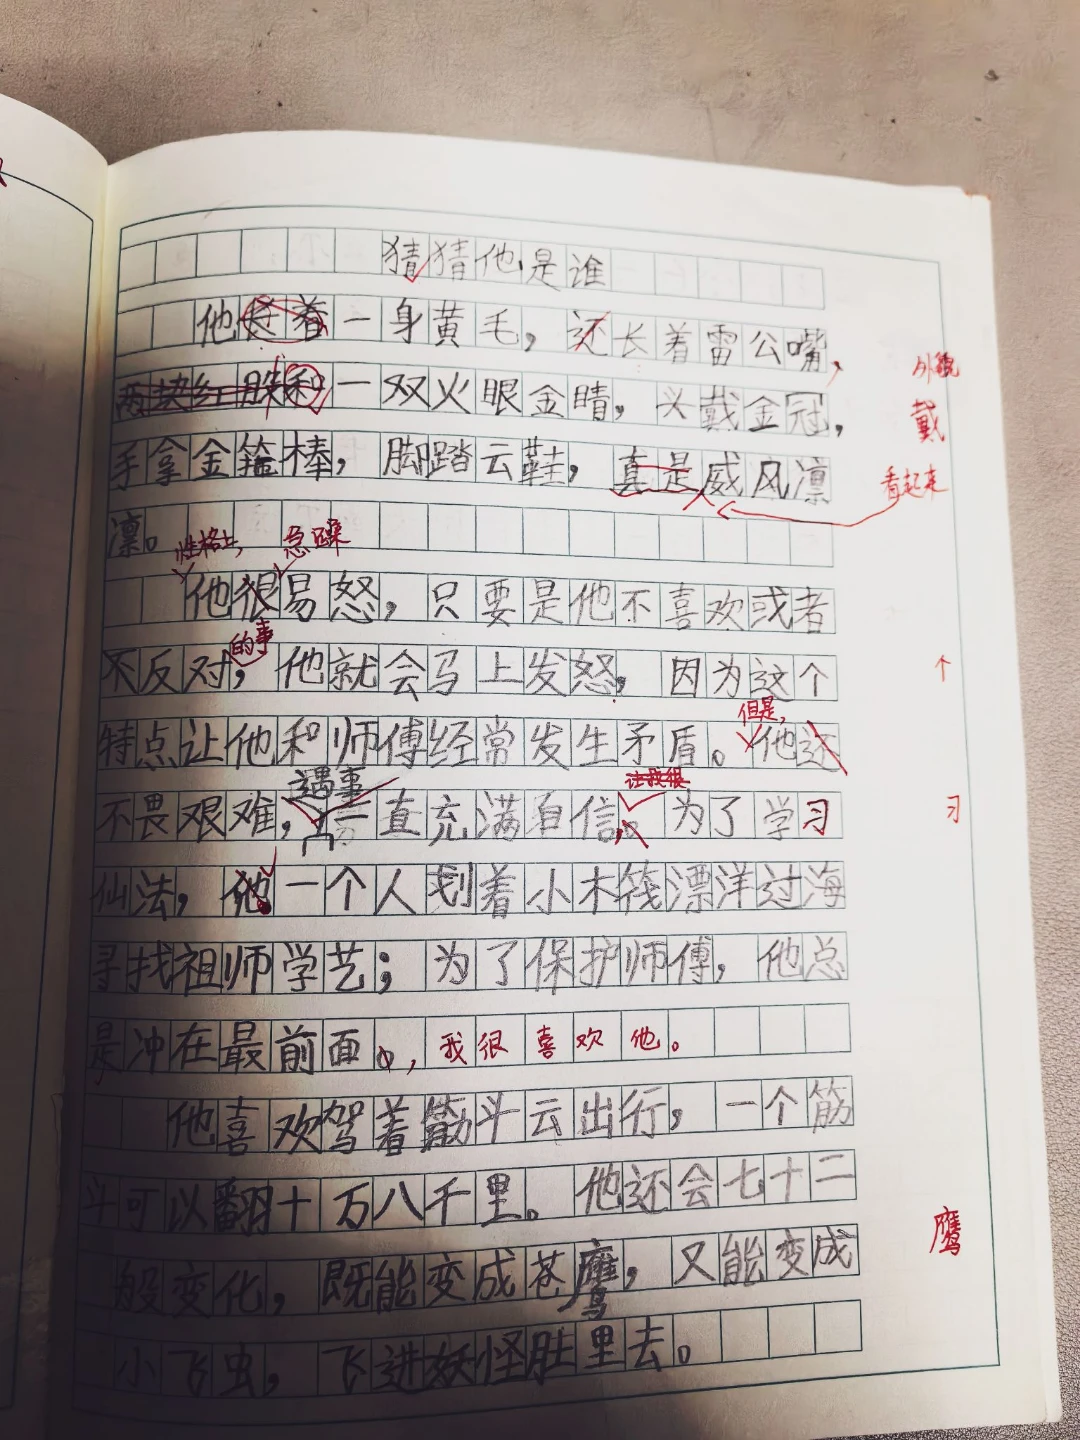 猜猜他是谁
他长着一身黄毛，还长着雷公嘴，
外貌
两块红股和一双火眼金睛，头戴金冠，
戴
手拿金箍棒，脚踏云鞋，真是威风凛
看起来
凛。
性格上，
急躁
他很易怒，只要是他不喜欢或者
的事
不反对，他就会马上发怒，因为这个
个
但是，
特点让他和师傅经常发生矛盾。他还
遇事
让我很
不畏艰难，一直充满自信。为了学习
习
仙法，他一个人划着小木筏漂洋过海
寻找祖师学艺；为了保护师傅，他总
是冲在最前面。，我很喜欢他。
他喜欢驾着筋斗云出行，一个筋
斗可以翻十万八千里。他还会七十二
般变化，既能变成苍鹰，又能变成
鹰
小飞虫，飞进妖怪肚里去。